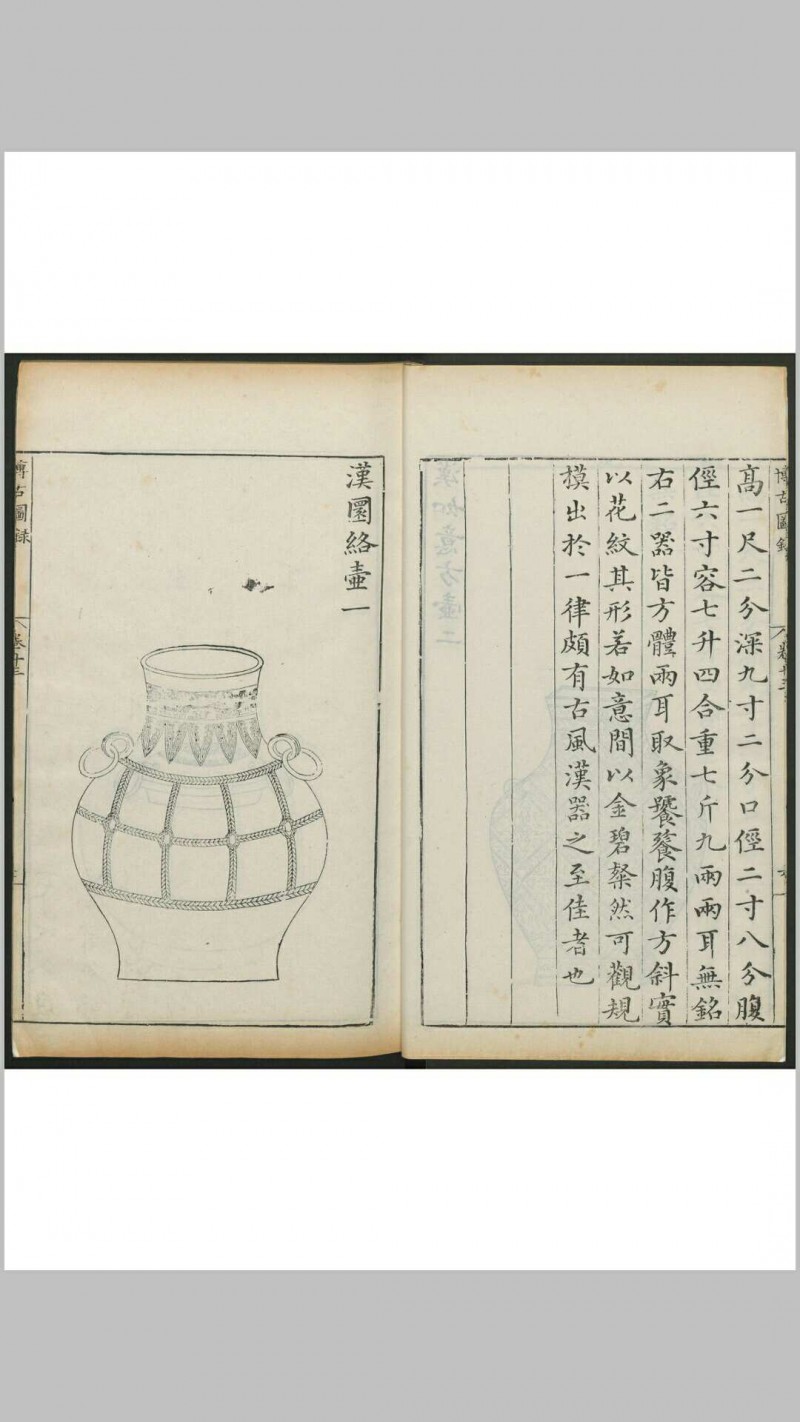 博古圖錄
卷十三
高一尺二分深九寸二分口徑二寸八分腹
徑六寸容七升四合重七斤九兩兩耳無銘
右二器皆方體兩耳取象饕餮腹作方斜實
以花紋其形若如意間以金碧粲然可觀規
摸出於一律頗有古風漢器之至佳者也
漢圜絡壺一
博古圖録
卷十三